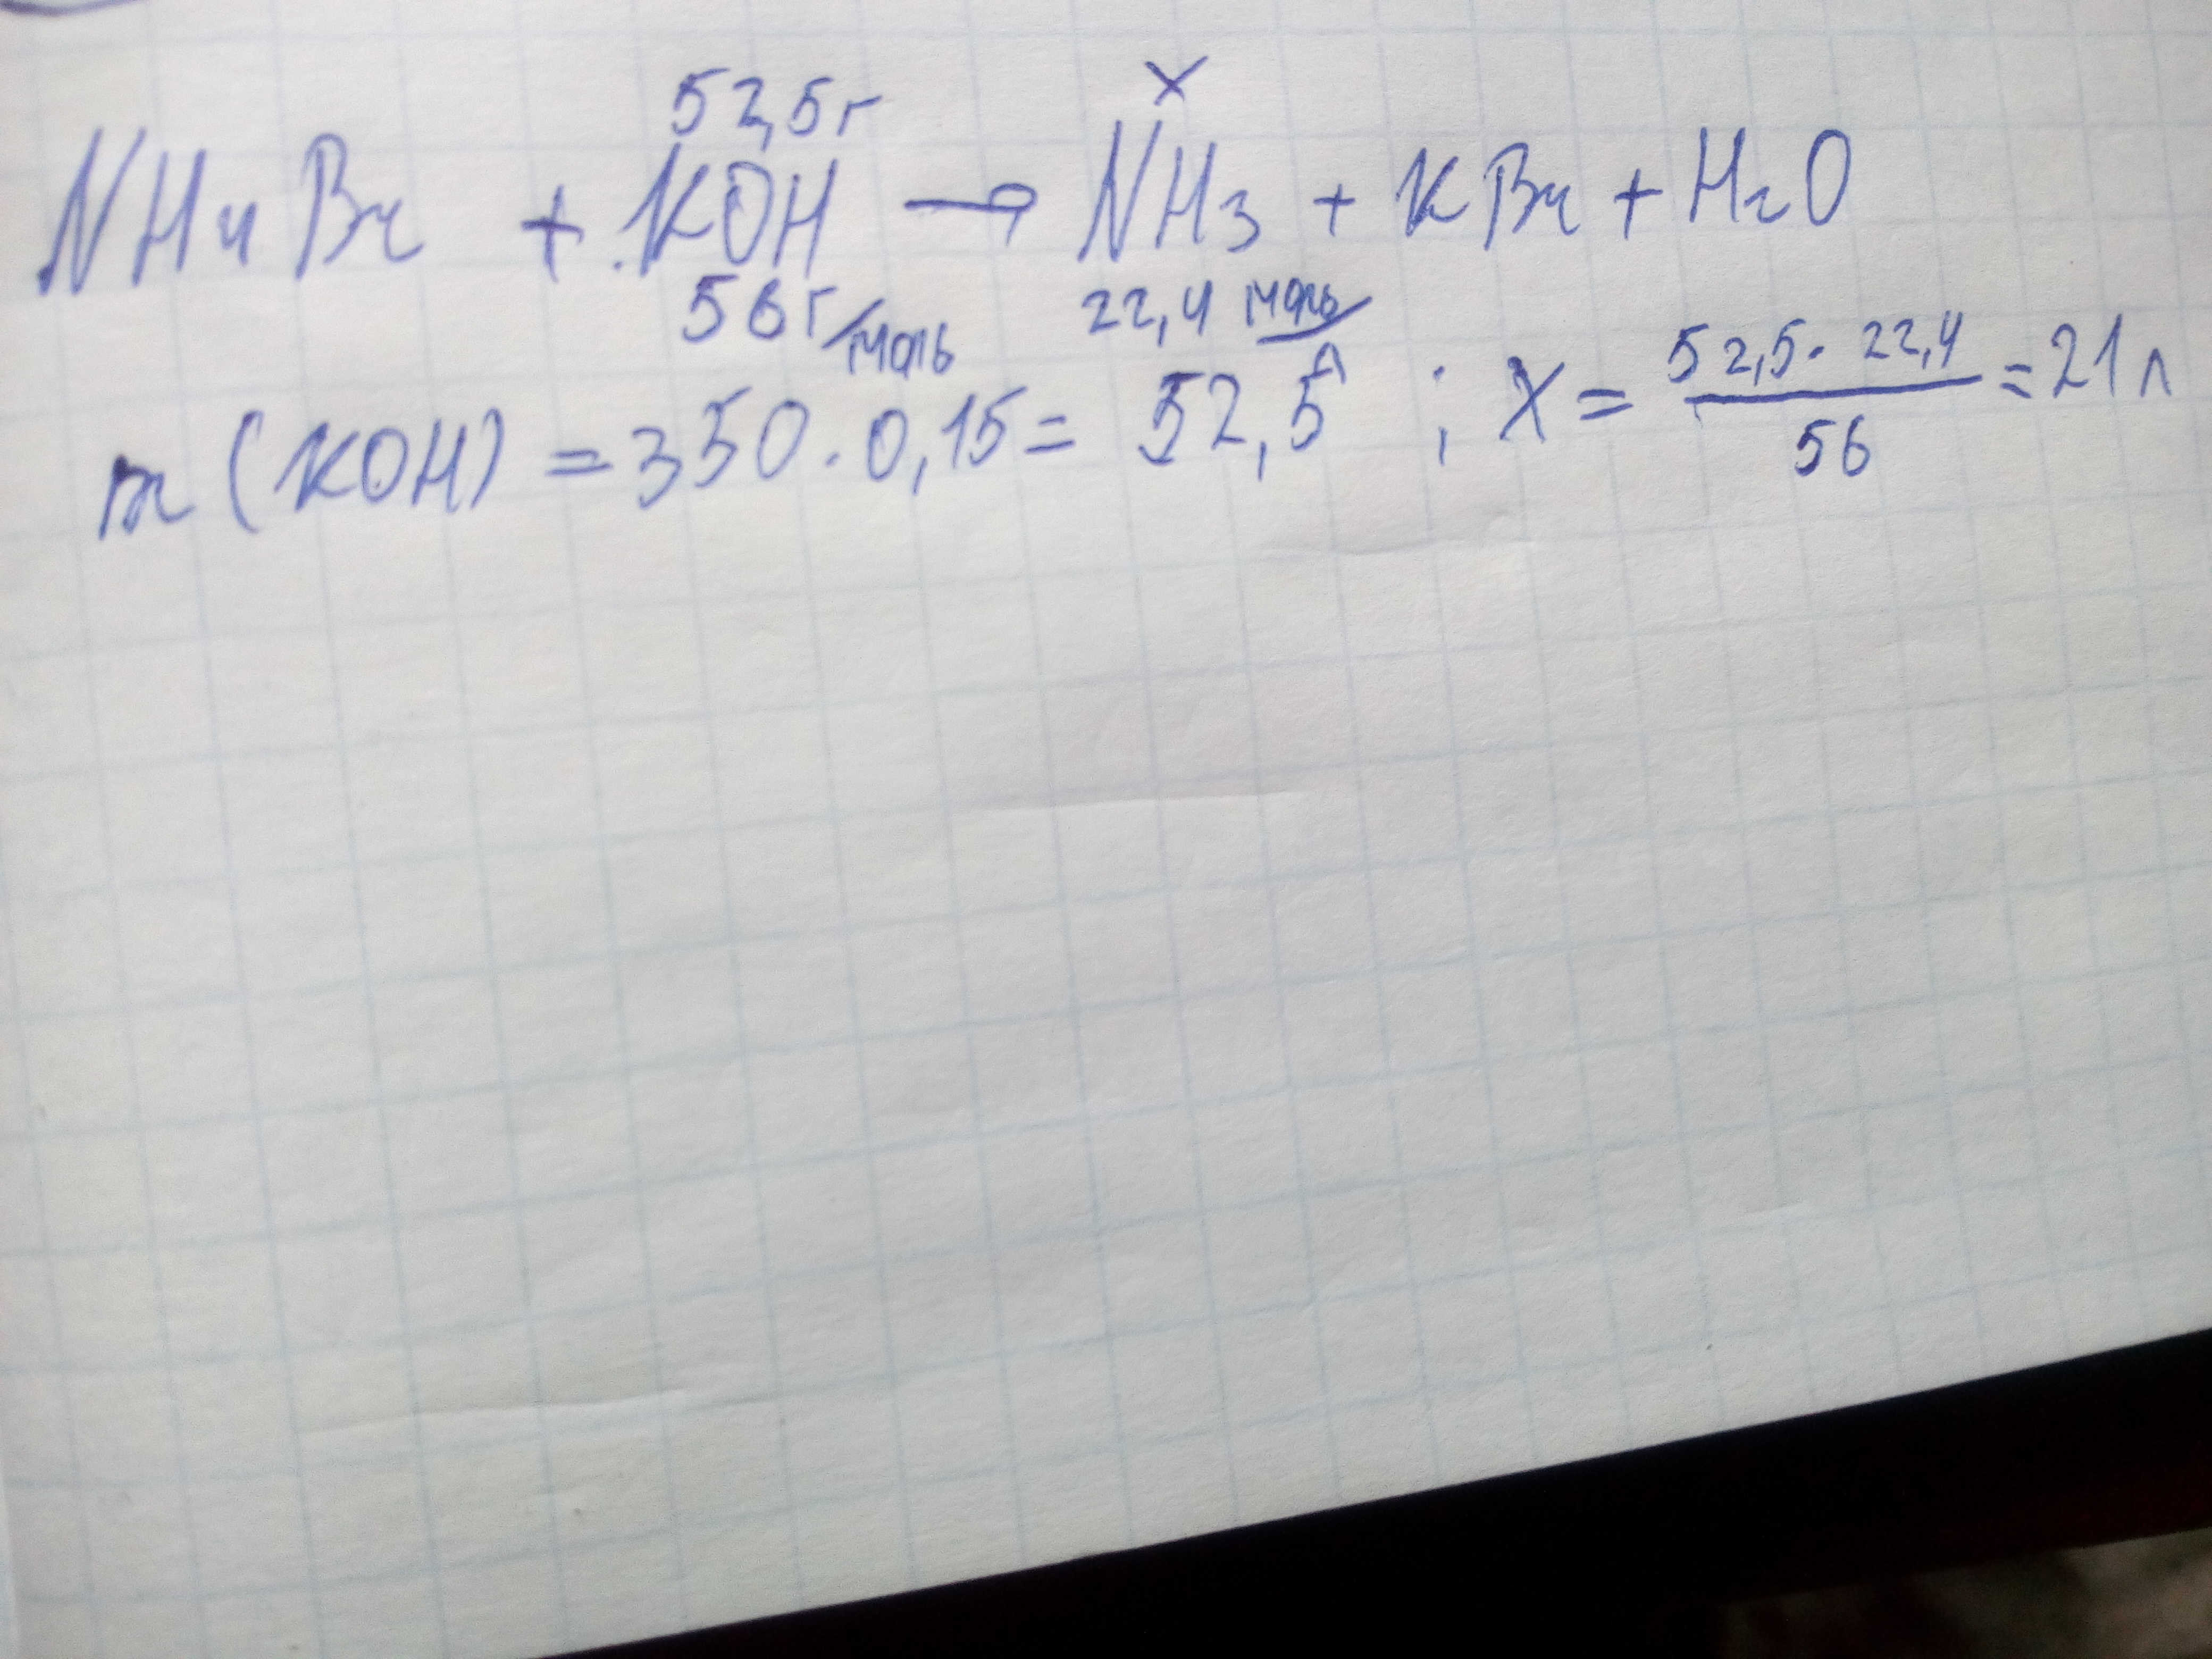 52,5г x
NH4Br + KOH → NH3 + KBr + H2O
56г/моль 22,4 моль/л
m (KOH) = 350 · 0,15 = 52,5 ; X = 52,5 · 22,4 / 56 = 21 л